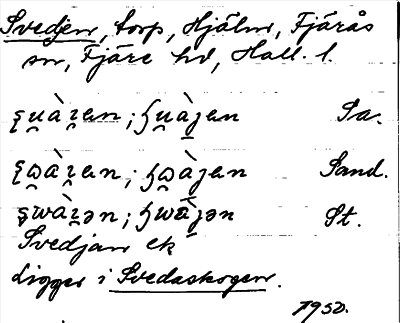 Svedjen, torp, Hjälm, Fjärås
sn, Fjäre hd, Hall. l.
ʂu̯àʐen; ɧu̯àȷen Sa.
ʂω̯àʐen; ɧω̯àȷen Sand.
ʂwàʐən; ɧwàȷən St.
Svedjan ek
Ligger i Svedaskogen.
1950.